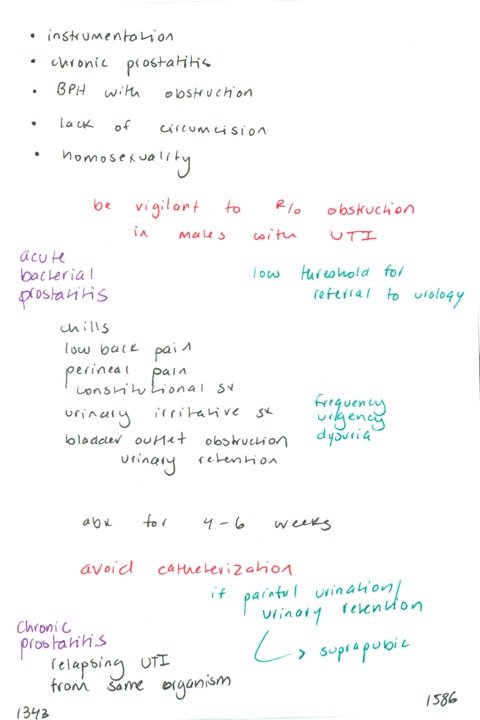 • instrumentation
• chronic prostatitis
• BPH with obstruction
• lack of circumcision
• homosexuality
be vigilant to R/o obstruction
in males with UTI
acute
bacterial
prostatitis
low threshold for
referral to urology
chills
low back pain
perineal pain
constitutional sx
urinary irritative sx
frequency
urgency
dysuria
bladder outlet obstruction
urinary retention
abx for 4-6 weeks
avoid catheterization
if painful urination/
urinary retention
> suprapubic
chronic
prostatitis
relapsing UTI
from same organism
1343
1586